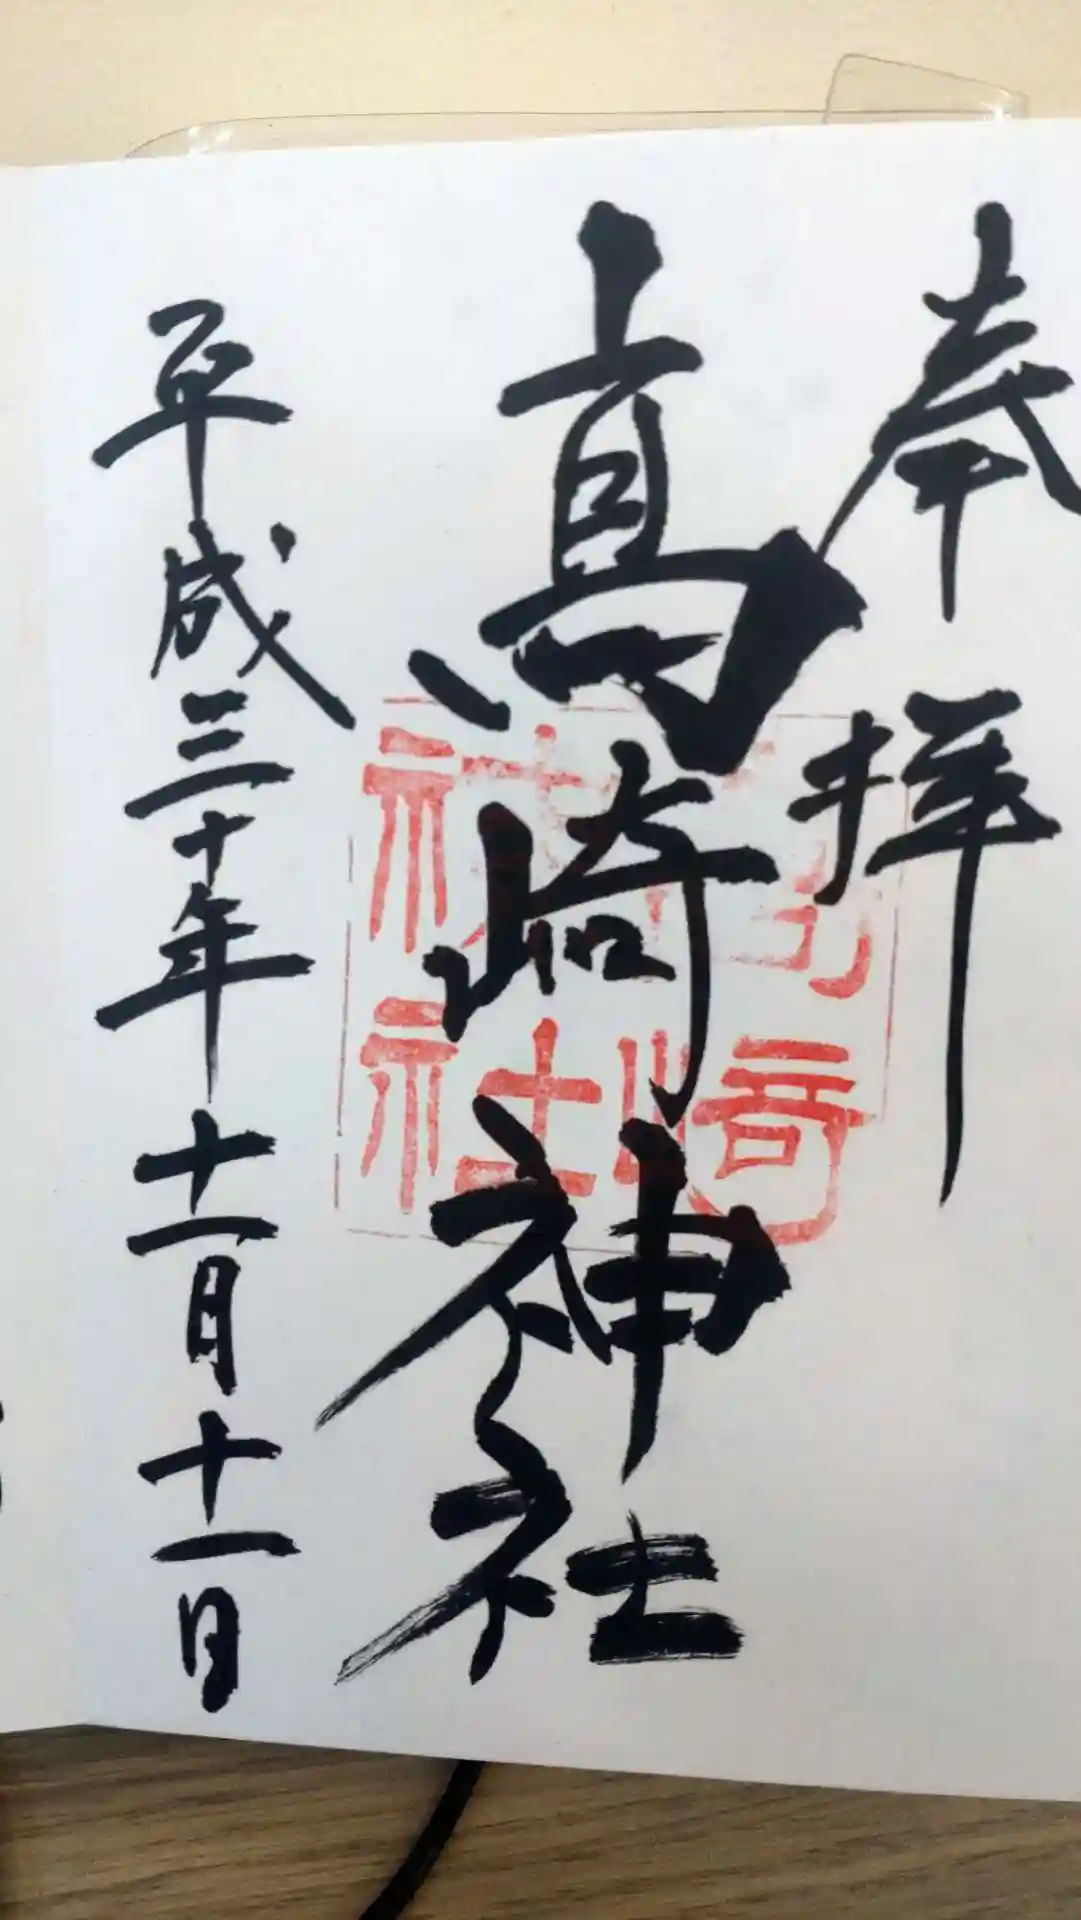 奉拝
高崎神社
平成三十年十一月十一日
崎
神社